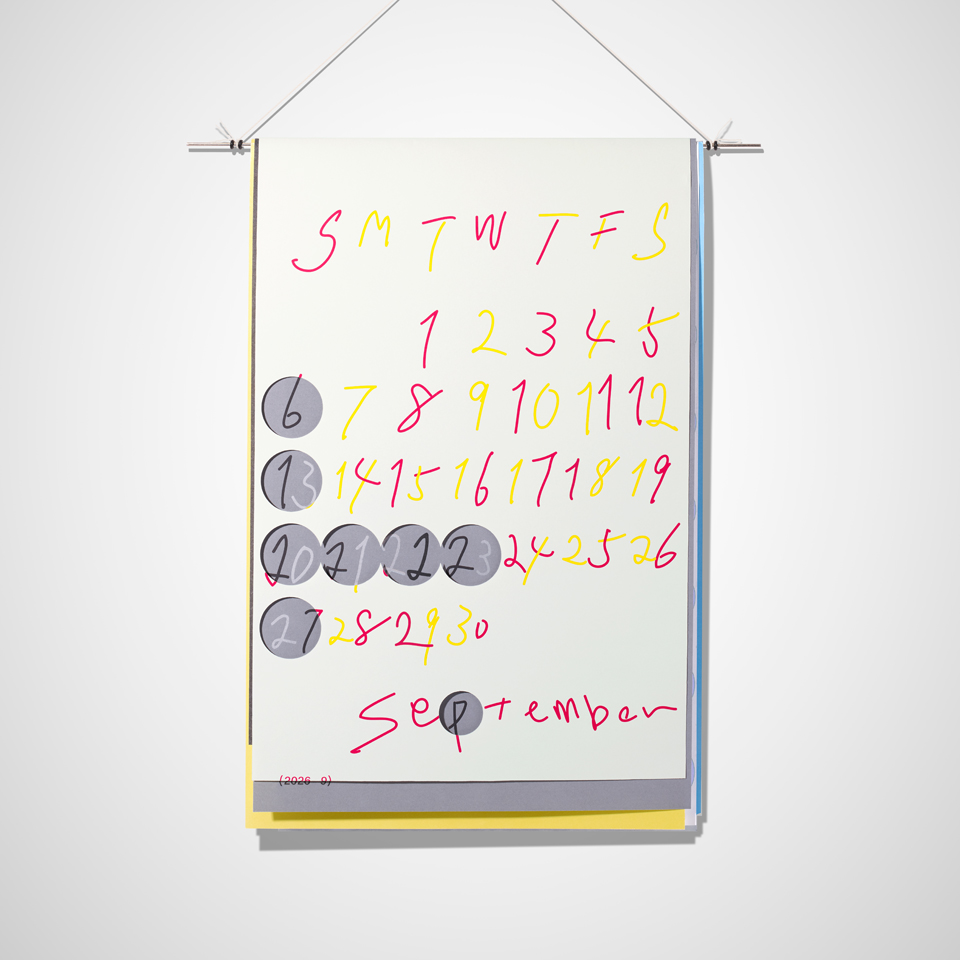 S M T W T F S
1 2 3 4 5
6 7 8 9 10 11 12
13 14 15 16 17 18 19
20 21 22 23 24 25 26
27 28 29 30
September
(2026 9)